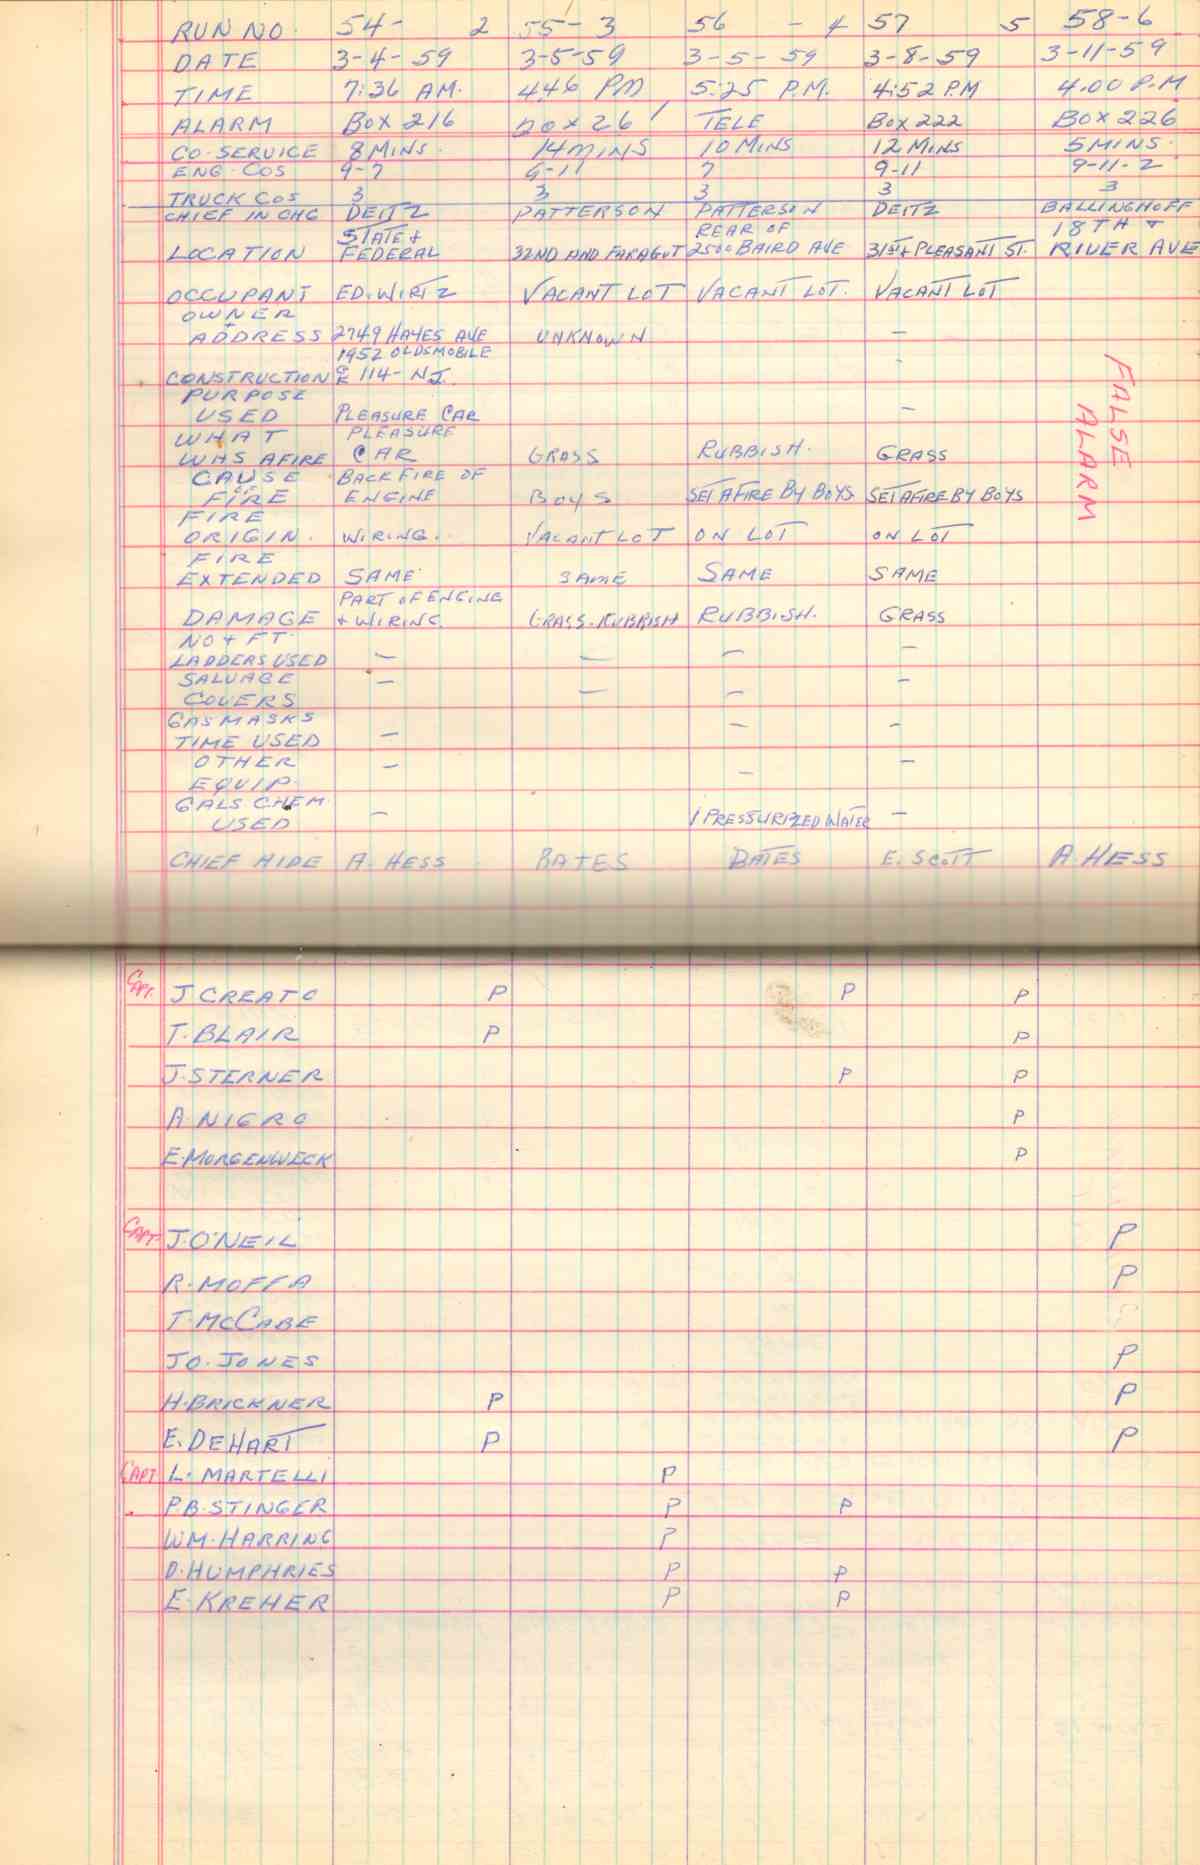 RUN NO. 54- 2 55-3 56 -4 57 5 58-6
DATE 3-4-59 3-5-59 3-5-59 3-8-59 3-11-59
TIME 7:36 AM. 446 PM 5:25 P.M. 4:52 P.M 4.00 P.M
ALARM BOX 216 BOX 26 TELE BOX 222 BOX 226
CO-SERVICE 8 MINS. 14 MINS 10 MINS 12 MINS 5 MINS.
ENG-COS 9-7 11 7 9-11 9-11-2
TRUCK COS 3 3 3 3 3
CHIEF IN CHG DEITZ PATTERSON PATTERSON DEITZ BALLINGHOFF
STATE + REAR OF 18TH +
LOCATION FEDERAL 32ND AND FARAGUT 2500 BAIRD AVE 31ST + PLEASANT ST. RIVER AVE
OCCUPANT ED. WIRTZ VACANT LOT VACANT LOT. VACANT LOT
OWNER
+
ADDRESS 2749 HAYES AVE UNKNOWN —
1952 OLDSMOBILE -
CONSTRUCTION 114- NJ.
PURPOSE
USED PLEASURE CAR —
WHAT PLEASURE
WAS AFIRE CAR GRASS RUBBISH. GRASS
CAUSE BACKFIRE OF
OF
FIRE ENGINE BOYS SET AFIRE BY BOYS SET AFIRE BY BOYS
FIRE
ORIGIN. WIRING. VACANT LOT ON LOT ON LOT
FIRE
EXTENDED SAME SAME SAME SAME
PART OF ENGINE
DAMAGE + WIRING. GRASS-RUBBISH RUBBISH. GRASS
NO + FT.
LADDERS USED — — — —
SALVAGE — —
COVERS — —
GAS MASKS — —
TIME USED —
OTHER — —
EQUIP. —
GALS CHEM
USED — 1 PRESSURIZED WATER —
CHIEF AIDE A. HESS BATES BATES E. SCOTT A. HESS
FALSE
ALARM
CAPT. J CREATO P P P
T. BLAIR P P
J. STERNER P P
A. NIGRO P
E. MORGENWECK P
CAPT. J. O'NEIL P
R. MOFFA P
T. McCABE
JO. JONES P
H. BRICKNER P P
E. DEHART P P
CAPT L. MARTELLI P
P.B. STINGER P P
WM. HARRING P
D. HUMPHRIES P P
E. KREHER P P